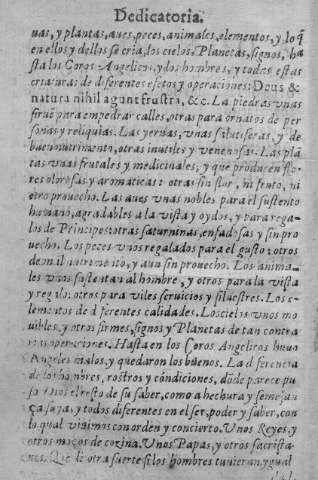 Dedicatoria.
uas, y plantas, aues, peces, animales, elementos, y lo q̃
en ellos y dellos se cria, los cielos, Planetas, signos, ha
sta los Coros Angelicos, y dos hombres, y todas estas
criaturas de diferentes efetos y operaciones: Deus &
natura nihil agunt frustra, &c. La piedras vnas
siruẽ para empedrar calles, otras para ornatos de per
sonas y reliquias. Las yeruas, vnas salutiferas, y de
buen nutrimento, otras inutiles y venenosas. Las plã
tas vnas frutales y medicinales, y que producen flo
res olorosas y aromaticas: otras sin flor, ni fruto, ni
otro prouecho. Las aues vnas nobles para el sustento
humano, agradables a la vista y oydos, y para rega-
los de Principes: otras saturninas, enfadosas y sin pro
uecho. Los peces vnos regalados para el gusto: otros
de mal nutrimento, y aun sin prouecho. Los anima-
les vnos sustentan al hombre, y otros para la vista
y regalo: otros para viles seruicios y siluestres. Los e-
lementos de diferentes calidades. Los cielos vnos mo
uibles, y otros firmes, signos y Planetas de tan contra
rias operaciones. Hasta en los Coros Angelicos huuo
Angeles malos, y quedaron los buenos. La diferencia
de los hombres, rostros y condiciones, dõde parece pu
so Dios el resto de su saber, como a hechura y semejan
ça suya, y todos diferentes en el ser, poder y saber, con
lo qual viuimos con orden y concierto. Vnos Reyes, y
otros moços de cozina. Vnos Papas, y otros sacrista-
nes. Que de otra suerte si los hombres tuuieran ygual